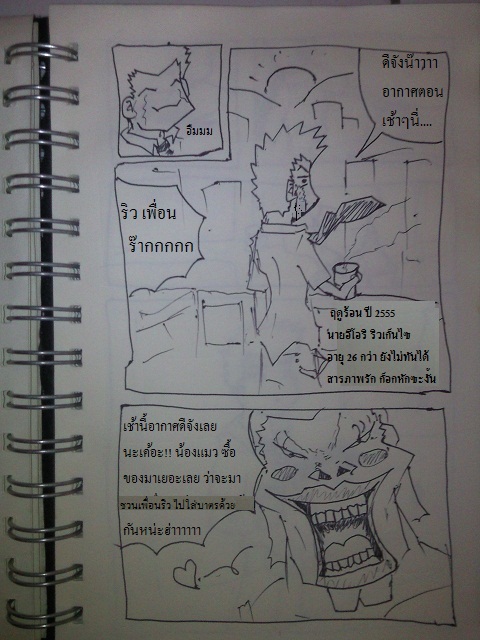 อืมมม
ดีจังน๊าาาา
อากาศตอน
เช้าๆนี่....
ริว เพื่อน
ร๊ากกกกก
ฤดูร้อน ปี 2555
นายอีโอริ ริวเก้นไซ
อายุ 26 กว่า ยังไม่ทันได้
สารภาพรัก ก็อกหักซะงั้น
เช้านี้อากาศดีจังเลย
นะเค้อะ!! น้องแมว ซื้อ
ของมาเยอะเลย ว่าจะมา
ชวนเพื่อนริว ไปใส่บาตรด้วย
กันหน่ะฮ่าาาาาา